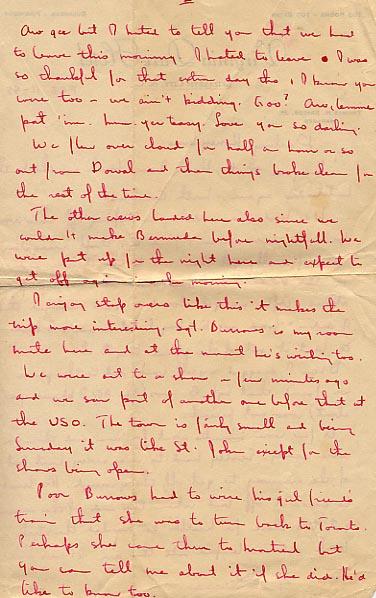 Aw gee but I hated to tell you that we had
to leave this morning. I hated to leave. I was
so thankful for that extra day tho, I know you
were too - we ain't kidding. Goo? Aw, lemme
pat 'im. hm- you easy. Love you so darling.
We flew over cloud for half an hour or so
out from Dorval and then things broke clear for
the rest of the time.
The other crews landed here also since we
couldn't make Bermuda before nightfall. We
were put up for the night here and expect to
get off again in the morning.
I enjoy stop overs like this it makes the
trip more interesting. Sgt. Burrows is my room
mate here and at the moment he's writing too.
We were out to a show a few minutes ago
and we saw part of another one before that at
the USO. The town is fairly small and being
Sunday it was like St. John except for the
shows being open.
Poor Burrows had to wire his girl friend's
train that she was to turn back to Toronto.
Perhaps she came thru to Montreal but
you can tell me about it if she did. He'd
like to know too.